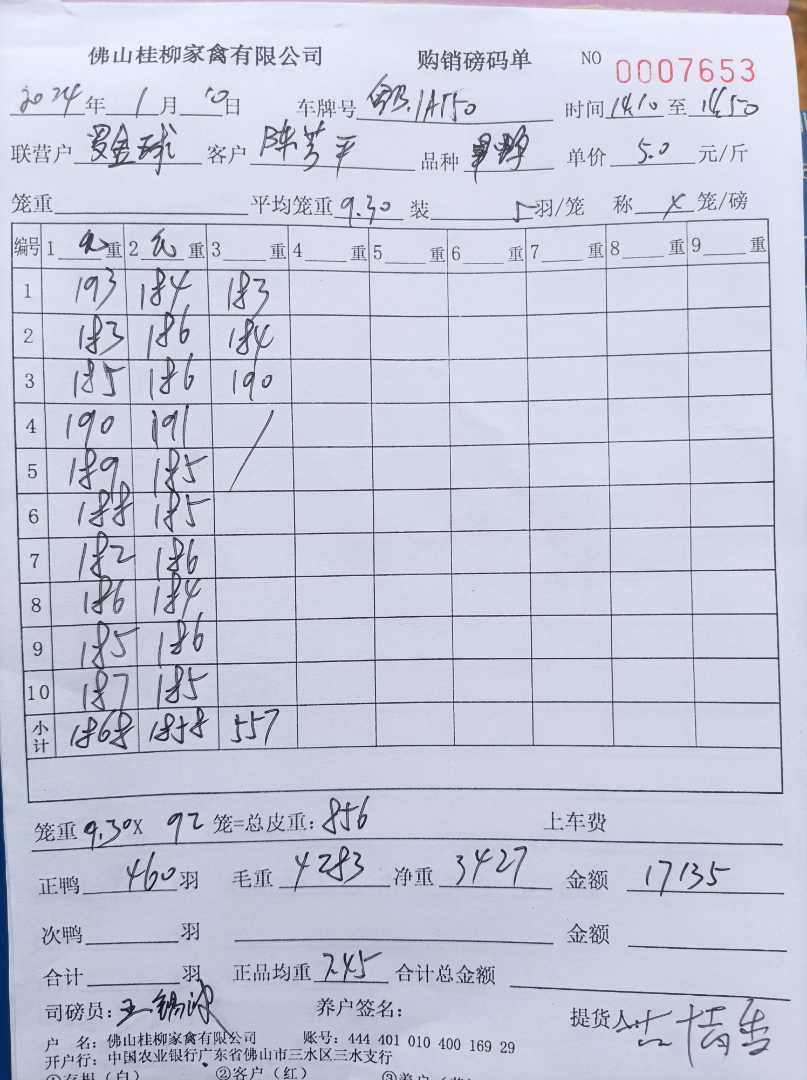 佛山桂柳家禽有限公司 购销磅码单 NO 0007653
2024年 1月 10日 车牌号 1A150 时间 14.10 至 14.50
联营户 金球 客户 陈芳平 品种 单价 5.0 元/斤
笼重 平均笼重 9.30 装 5羽/笼 称 笼/磅
编号 1 重 2 重 3 重 4 重 5 重 6 重 7 重 8 重 9 重
1 193 184 183
2 183 186 184
3 185 186 190
4 190 191 /
5 189 185
6 188 185
7 182 186
8 186 184
9 185 186
10 187 185
小计 1868 1858 557
笼重 9.30X 92 笼=总皮重: 856 上车费
正鸭 460 羽 毛重 4283 净重 3427 金额 17135
次鸭 羽 金额
合计 羽 正品均重 7.45 合计总金额
司磅员: 王锡球 养户签名: 提货人:
户 名: 佛山桂柳家禽有限公司 账号: 444 401 010 400 169 29
开户行: 中国农业银行广东省佛山市三水区三水支行
①存根(白) ②客户(红)